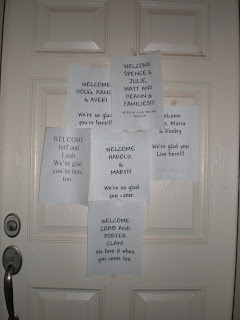 WELCOME
SPENCE &
JULIE,
MATT AND
DEANN &
FAMILIES!!!
WELCOME
DOUG,
& AVERI
We're so glad
you're here!!!
WELCOME
Jeff and
Leah
We're glad
you're here
too.
WELCOME
HAROLD,
&
MARY!!!
We're so glad
you came.
Maria
& Keeley
We're glad you
Live here!!!
WELCOME
CORB AND
PORTER
CLAN!
We love it when
you come too.